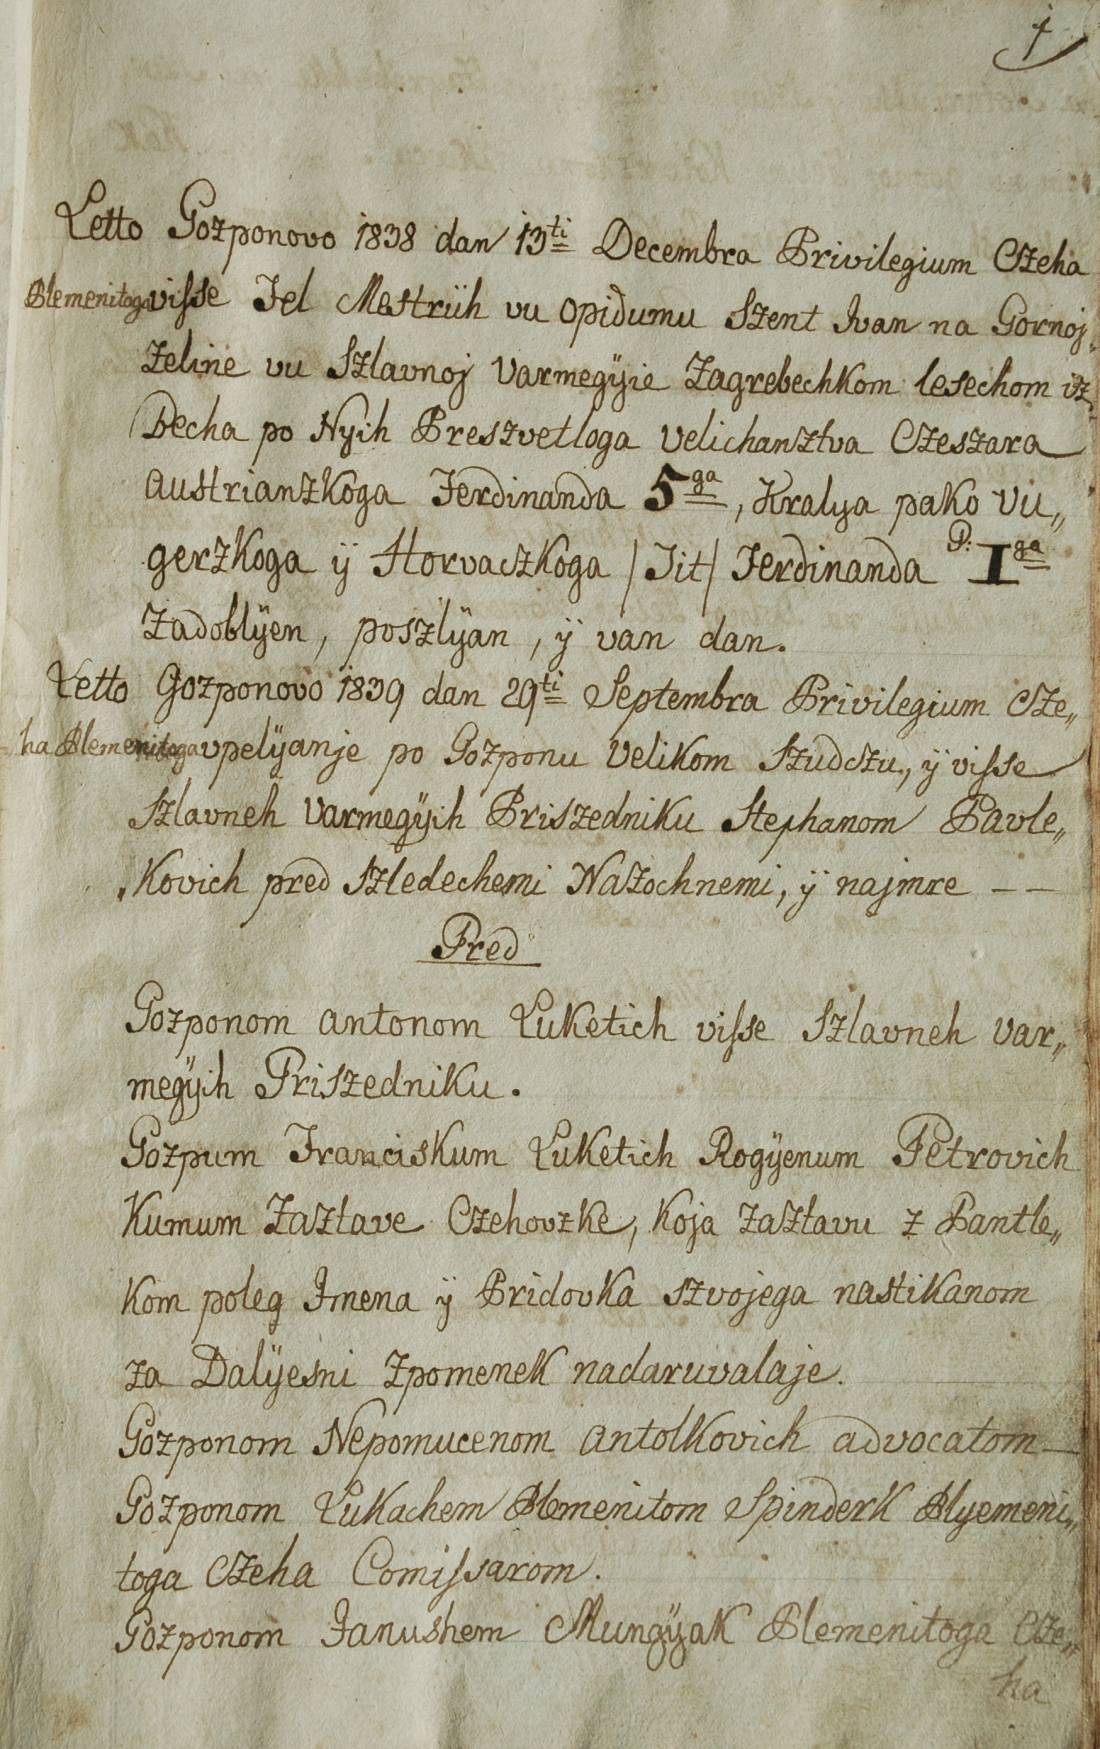 1
Letto Gozponovo 1838 dan 13ti Decembra Privilegium Czeha
Plemenitoga visse Fel Mestrüh vu opidumu Szent Ivan na Gornoj
Zeline vu Szlavnoj Varmegÿie Zagrebechkom lesechom iz
Becha po Nyih Preszvetloga velichanztva Czeszara
Austrianzkoga Ferdinanda 5ga, Kralya pako Vu„
gerzkoga ÿ Horvaczkoga /Tit/ Ferdinanda P: Iga
Zadoblÿen, poszlÿan, ÿ van dan.
Letto Gozponovo 1839 dan 29ti Septembra Privilegium Cze„
ha Plemenitoga vpelÿanje po Gozponu Velikom Szudczu, ÿ visse
Szlavneh Varmegÿih Priszedniku Stephanom Pavle„
kovich pred Szledechemi Nazochnemi, ÿ najmre – –
Pred
Gozponom Antonom Luketich visse Szlavneh Var„
megÿih Priszedniku.
Gozpum Franciskum Luketich Rogÿenum Petrovich
Kumum Zaztave Czehovzke, koja Zaztavu z Pantle„
kom poleg Imena ÿ Pridovka szvojega nastikanom
za Dalÿesni Zpomenek nadaruvalaje.
Gozponom Nepomucenom Antolkovich advocatom –
Gozponom Lukachem Plemenitom Spinderk Plyemeni„
toga Czeha Comissarom.
Gozponom Janushem Mungÿak Plemenitoga Cze„
ha